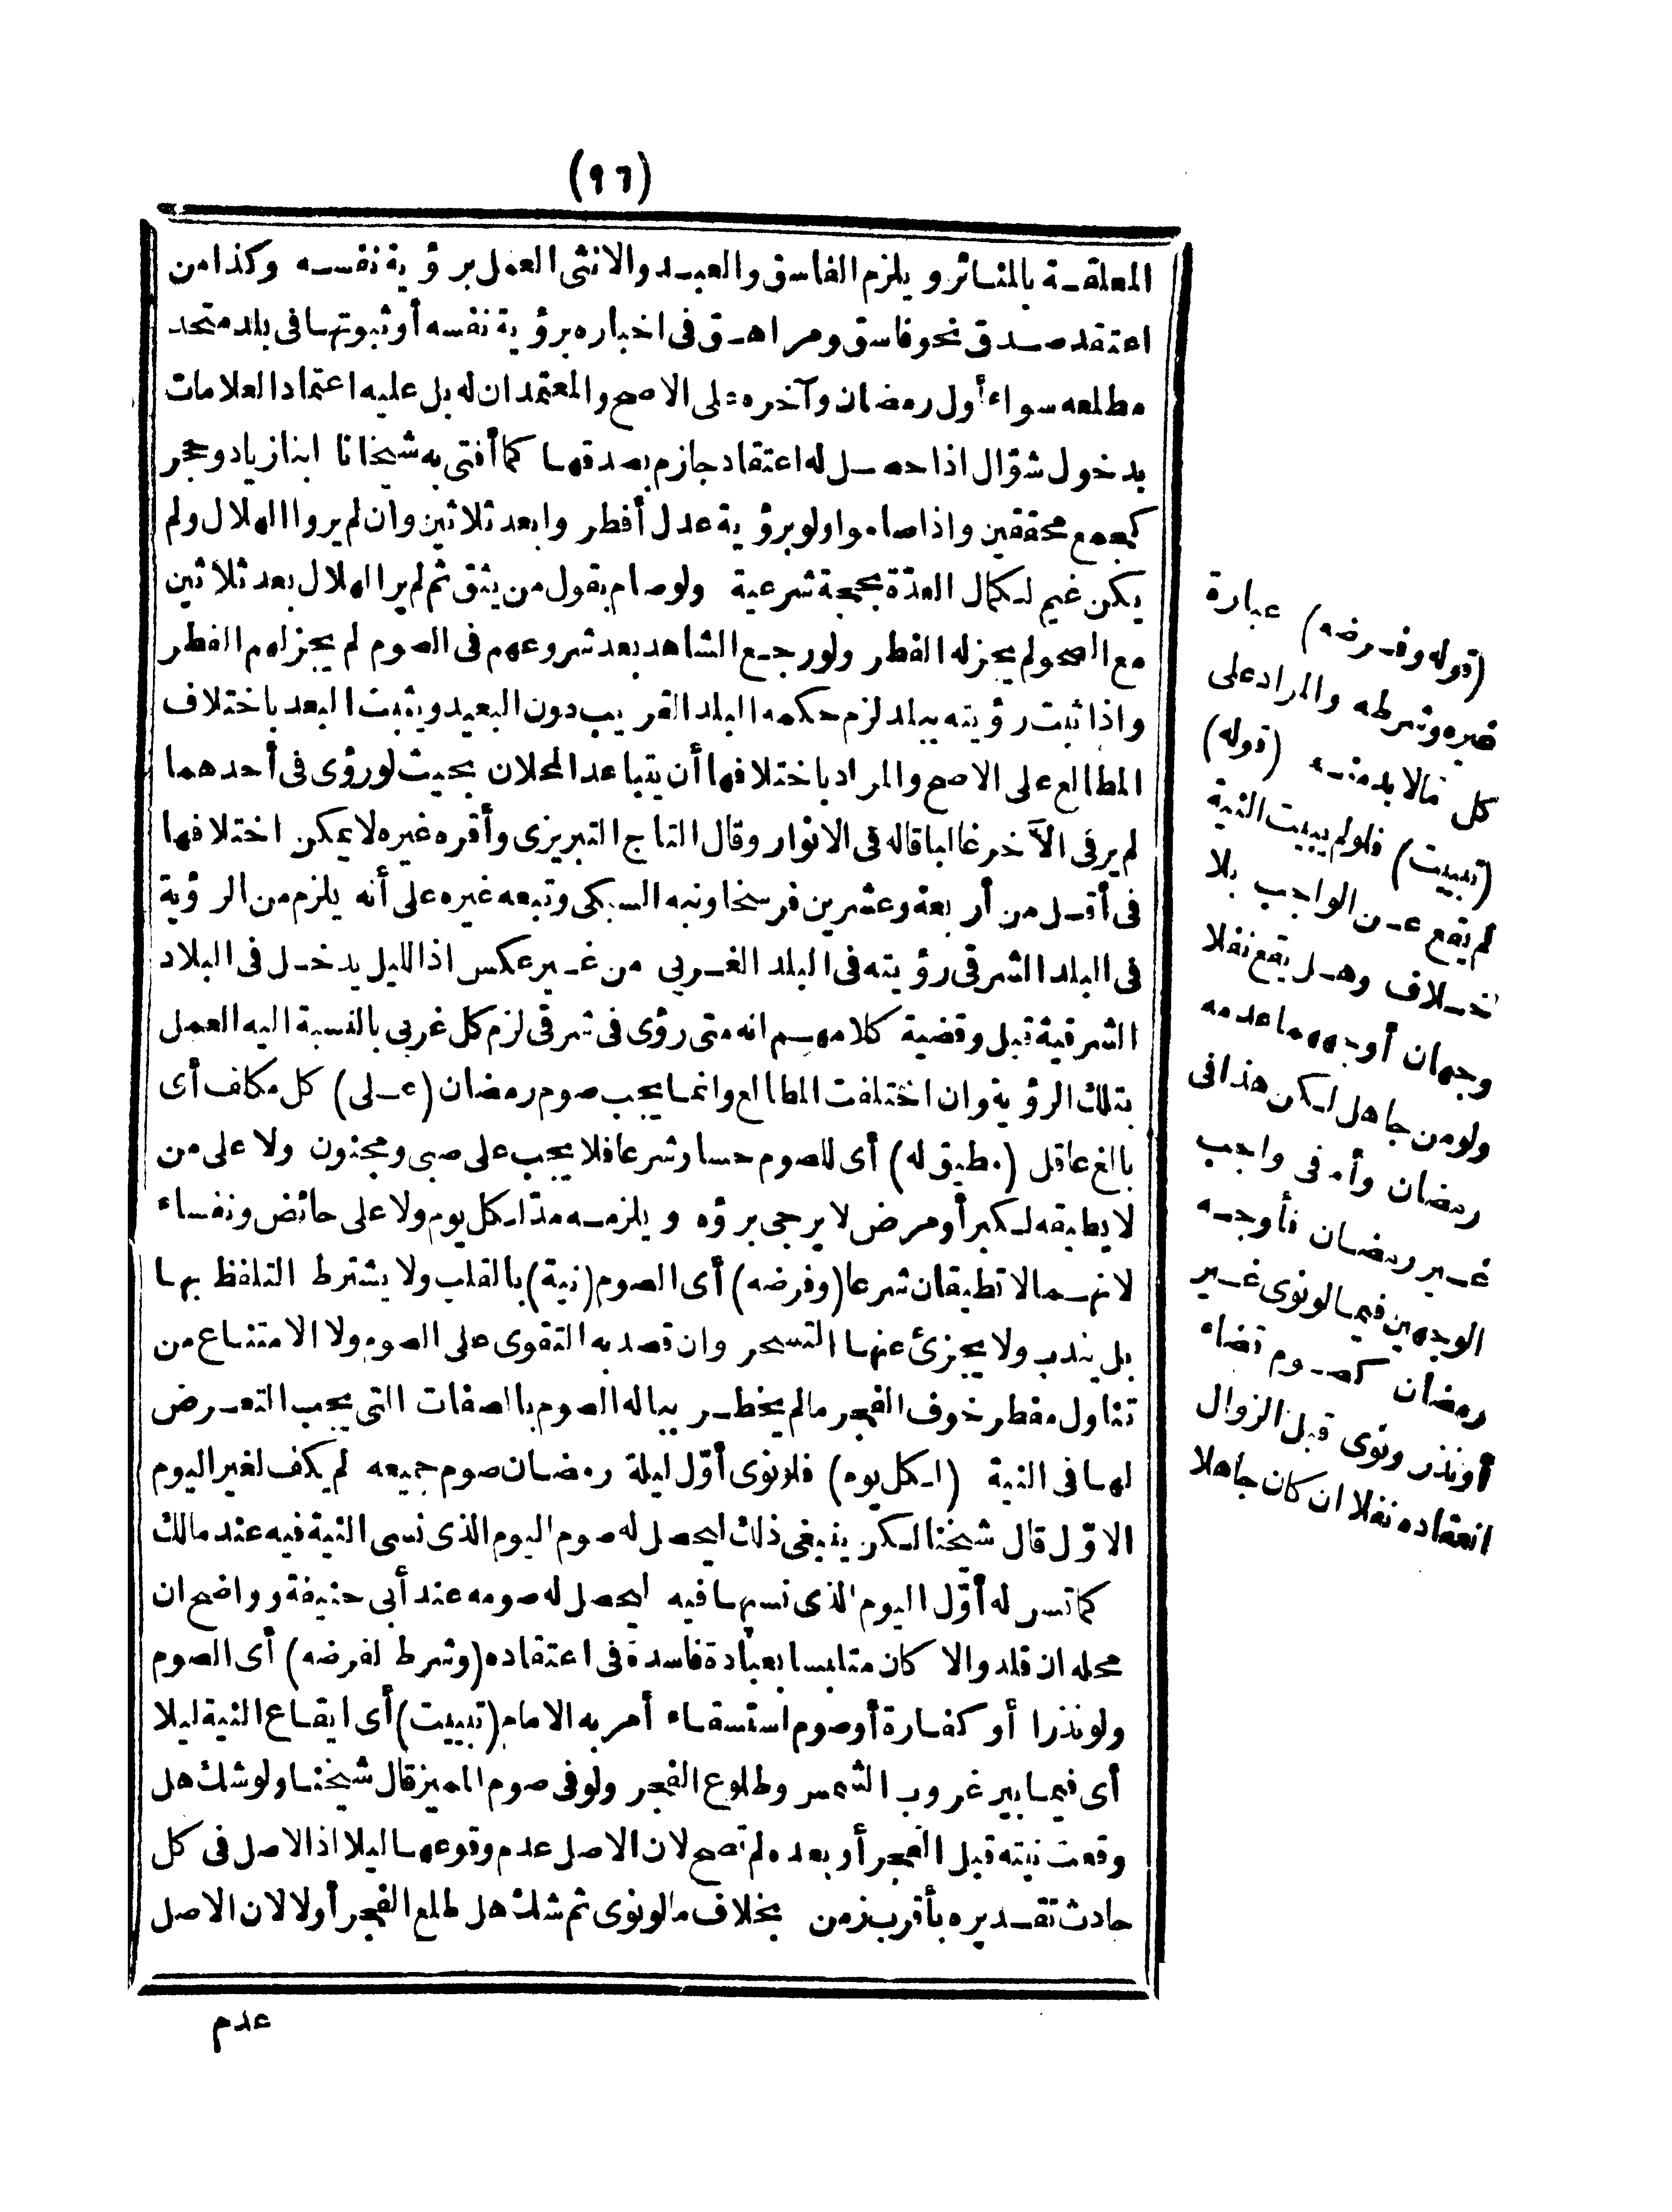 (٩٦)
المعلقة بالمنائر ويلزم الفاسق والعبد والانثى العمل برؤية نفسه وكذا من
اعتقد صدق نحو فاسق ومراهق فى اخباره برؤية نفسه أو ثبوتها فى بلد متحد
مطلعه سواء أول رمضان وآخره على الاصح والمعتمد ان له بل عليه اعتماد العلامات
بدخول شوّال اذا حصل له اعتقاد جازم بصدقها كما أفتى به شيخانا ابنا زياد وحجر
كجمع محققين واذا صاموا ولو برؤية عدل أفطروا بعد ثلاثين وان لم يروا الهلال ولم
يكن غيم لكمال العدّة بحجة شرعية ولو صام بقول من يثق ثم لم ير الهلال بعد ثلاثين
مع الصحو لم يجز له الفطر ولو رجع الشاهد بعد شروعهم فى الصوم لم يجز لهم الفطر
واذا ثبت رؤيته ببلد لزم حكمه البلد القريب دون البعيد ويثبت البعد باختلاف
المطالع على الاصح والمراد باختلافها أن يتباعد المحلان بحيث لو رؤى فى أحدهما
لم ير فى الآخر غالبا قاله فى الانوار وقال التاج التبريزى وأقره غيره لا يمكن اختلافها
فى أقل من أربعة وعشرين فرسخا ونبه السبكى وتبعه غيره على أنه يلزم من الرؤية
فى البلد الشرقى رؤيته فى البلد الغربى من غير عكس اذ الليل يدخل فى البلاد
الشرقية قبل وقضية كلامهم انه متى رؤى فى شرقى لزم كل غربى بالنسبة اليه العمل
بتلك الرؤية وان اختلفت المطالع وانما يجب صوم رمضان (على) كل مكلف أى
بالغ عاقل (مطيق له) أى للصوم حسا وشرعا فلا يجب على صبى ومجنون ولا على من
لا يطيقه لكبر أو مرض لا يرجى برؤه ويلزمه مدّ لكل يوم ولا على حائض ونفساء
لانهما لا تطيقان شرعا (وفرضه) أى الصوم (نية) بالقلب ولا يشترط التلفظ بها
بل يندب ولا يجزئ عنها التسحر وان قصد به التقوى على الصوم ولا الامتناع من
تناول مفطر خوف الفجر ما لم يخطر بباله الصوم بالصفات التى يجب التعرض
لها فى النية (لكل يوم) فلو نوى أوّل ليلة رمضان صوم جميعه لم يكف لغير اليوم
الاوّل قال شيخنا لكن ينبغى ذلك ليحصل له صوم اليوم الذى نسى النية فيه عند مالك
كما تسن له أوّل اليوم الذى نسيها فيه ليحصل له صومه عند أبى حنيفة وواضح ان
محله ان قلد والا كان متلبسا بعبادة فاسدة فى اعتقاده (وشرط لفرضه) أى الصوم
ولو نذرا أو كفارة أو صوم استسقاء أمر به الامام (تبييت) أى ايقاع النية ليلا
أى فيما بين غروب الشمس وطلوع الفجر ولو فى صوم المميز قال شيخنا ولو شك هل
وقعت نيته قبل الفجر أو بعده لم تصح لان الاصل عدم وقوعها ليلا اذ الاصل فى كل
حادث تقديره بأقرب زمن بخلاف ما لو نوى ثم شك هل طلع الفجر أو لا لان الاصل
عدم
(قوله وفرضه) عبارة
غيره وشرطه والمراد على
كل ما لا بد منه (قوله)
(تبييت) فلو لم يبيت النية
لم يقع عن الواجب بلا
خلاف وهل يقع نفلا
وجهان أوجههما عدمه
ولو من جاهل لكن هذا فى
رمضان وأما فى واجب
غير رمضان فأوجه
الوجهين فيما لو نوى غير
رمضان كصوم قضاء
أو نذر ونوى قبل الزوال
انعقاده نفلا ان كان جاهلا